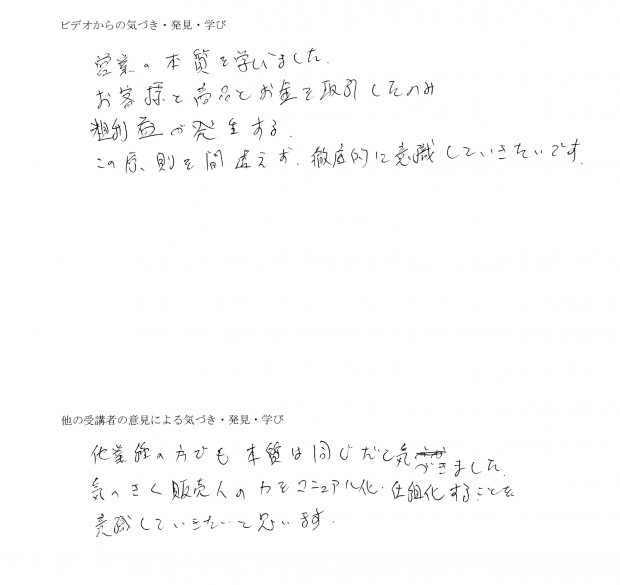 ビデオからの気づき・発見・学び
営業の本質を学びました.
お客様と商品とお金を取引したのみ
粗利益が発生する.
この原則を間違えず、徹底的に意識していきたいです.
他の受講者の意見による気づき・発見・学び
他業種の方でも本質は同じだと気づきました.
気のきく販売人の力をマニュアル化・仕組化することを
意識していきたいと思います.